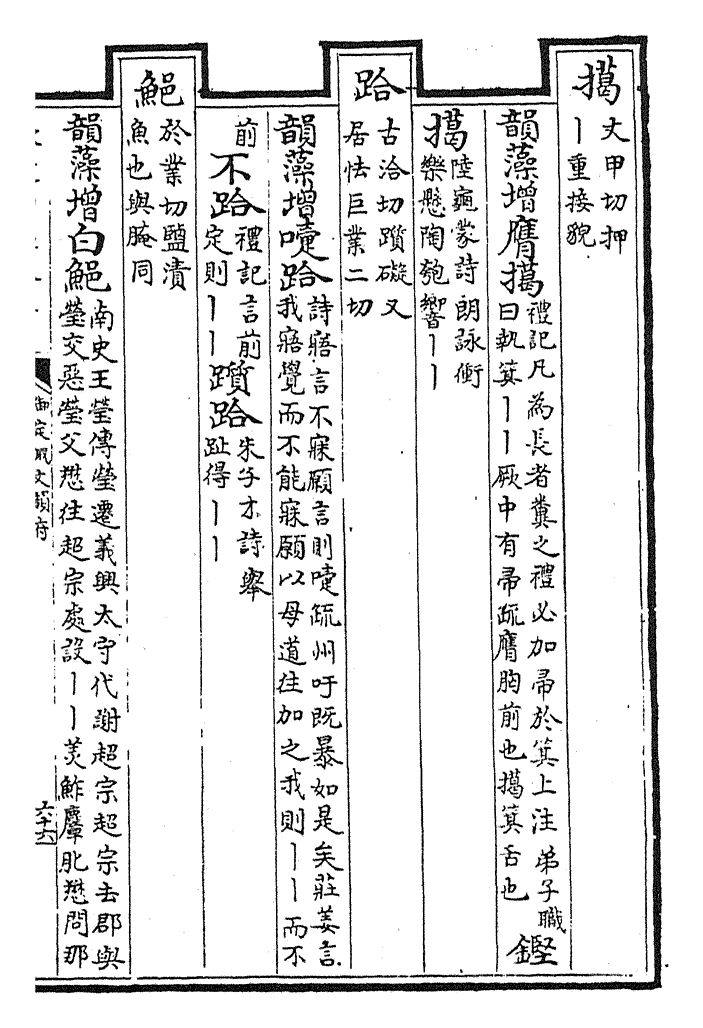 擖
丈甲切押
丨重接貌
韻藻增膺擖
禮記凡為長者糞之禮必加帚於箕上注弟子職
曰執箕丨丨厥中有帚疏膺胸前也擖箕舌也
鏗
擖
陸龜蒙詩朗詠衝
樂懸陶匏響丨丨
跲
古洽切躓礙又
居怯巨業二切
韻藻增嚏跲
詩寤言不寐願言則嚏疏州吁既暴如是矣莊姜言
我寤覺而不能寐願以母道往加之我則丨丨而不
前
不跲
禮記言前
定則丨丨
躓跲
朱子才詩舉
趾得丨丨
䱒
於業切鹽漬
魚也與腌同
韻藻增白䱒
南史王瑩傳瑩遷義興太守代謝超宗超宗去郡與
瑩交惡瑩父懋往超宗處設丨丨美鮓麞肶懋問那
御定佩文韻府
六十六